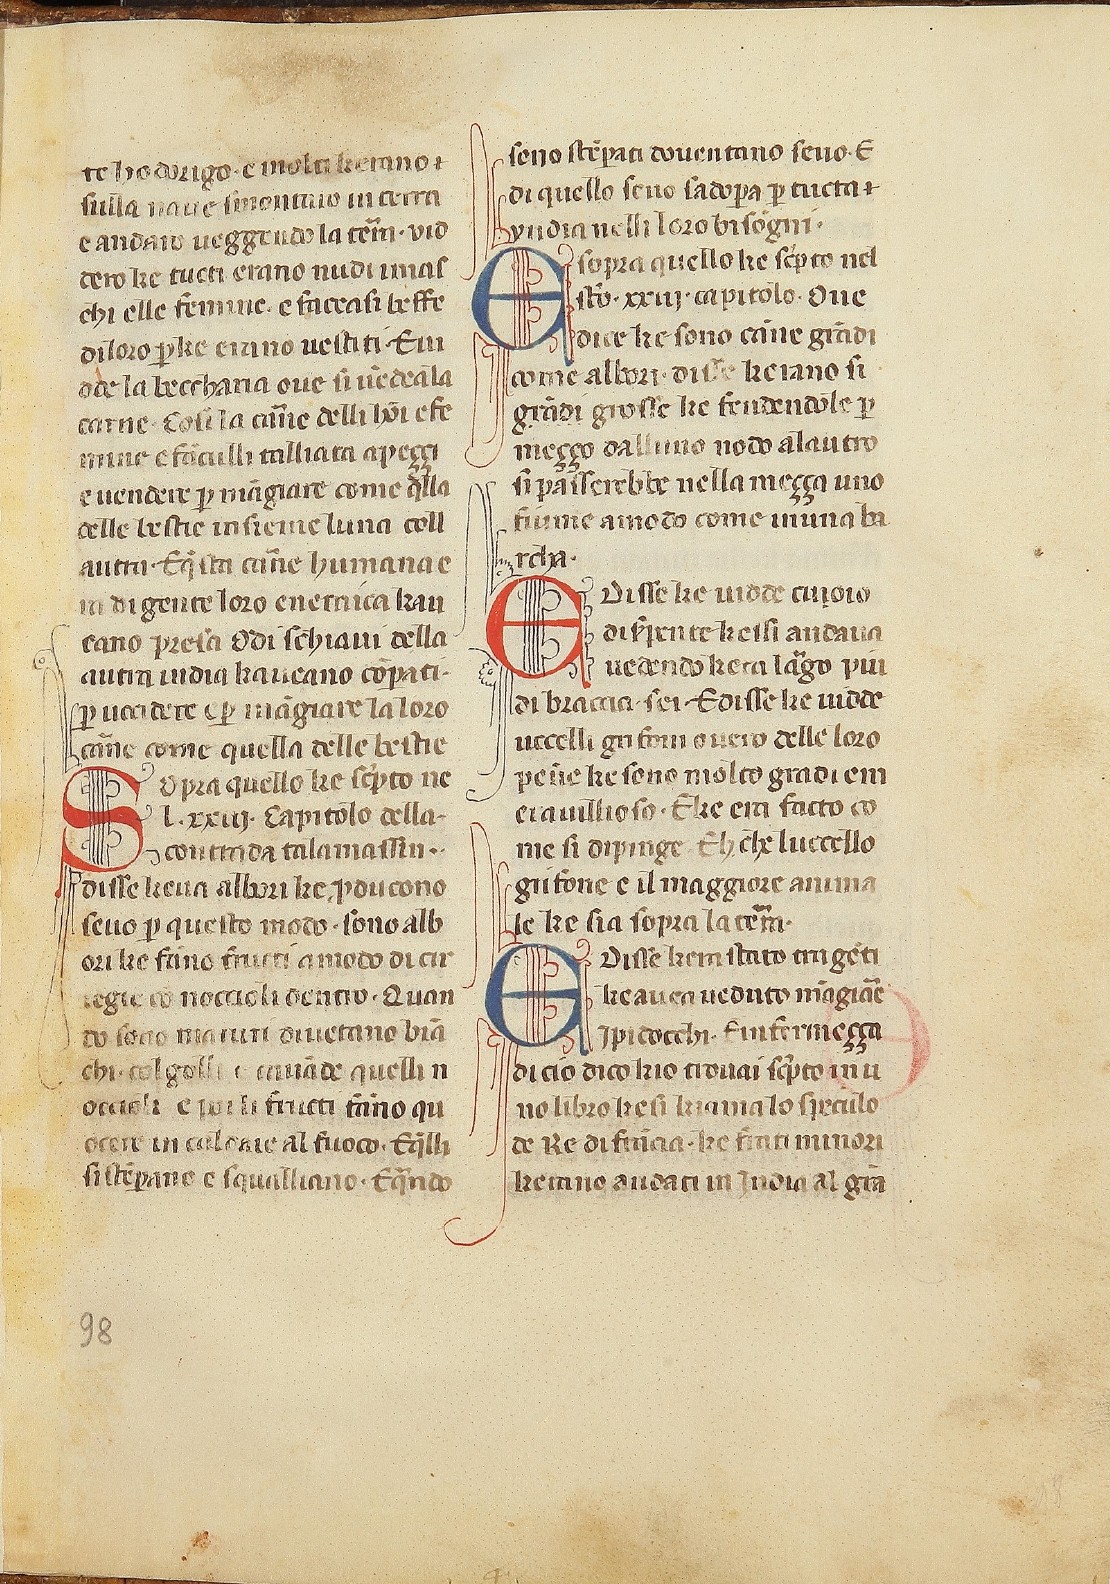 te hodorigo· e molti kerano ꝛ
sulla naue smontaro in terra
e andaro ueggendo la tẽra· vid
dero ke tucti erano nudi i mas
chi elle femine. e faceasi beffe
di loro ꝑke erano uestiti· Eui
de la beccharia oue si uẽdea la
carne· Cosi la carñe delli hoĩ e fe
mine e fãculli talliata a peççi
e uendere ꝑ mãgiare come q̃lla
delle bestie insieme luna coll
autra· Eq̃sta carñe humana e
ra di gente loro enemica kau
eano presa O di schiaui della
autra india kaueano cõpati·
ꝑ uccidere e ꝑ mãgiare la loro
carñe come quella delle bestie
Sopra quello ke scp̃to ne
l· xxiij· Capitolo della·
contrada talamassin·
disse keua albori ke ꝓducono
seuo ꝑ questo modo· sono alb
ori ke fãno fructi a modo di cir
iegie cõ noccioli dentro· Quan
do sono maturi diuetano biã
chi· colgolli e cauãde quelli n
occioli e poi li fructi fãno qu
ocere in caldaie al fuoco· Eq̃lli
si stẽpano e squalliano· Eq̃ndo
seno stẽpati douentano seuo· E
di quello seuo sadopa ꝑ tucta ꝛ
yndia nelli loro bisõgni·
E sopra quello ke scp̃to nel
sto· xxiij· capitolo· Oue
dice ke sono cãne grãdi
come albori· disse kerano si
grãdi grosse ke fendendole ꝑ
meçço dalluno nodo alautro
si passerebbe nella meçça uno
fiume a modo come in una ba
rcha·
E Disse ke uidde cuoio
di ẜpente ke isi andaua
uedendo kera lãgo piu
di braccia· sei· Edisse ke uidde
uccelli grifoni ouero delle loro
peñe ke sono molto gradi e m
erauilliose· Eke era facto co
me si dipinge Eh chẽ luccello
grifone e il maggiore anima
le ke sia sopra la tẽra·
E Disse kera stato tra gẽti
ke auea ueduto mãgiare
Ipidocchi· Einfermeçça
di cio dico kio trouai scp̃to in u
no libro ke si kiama lo speculo
de Re di frãcia· ke frati minori
kerano andati in India al grã
98